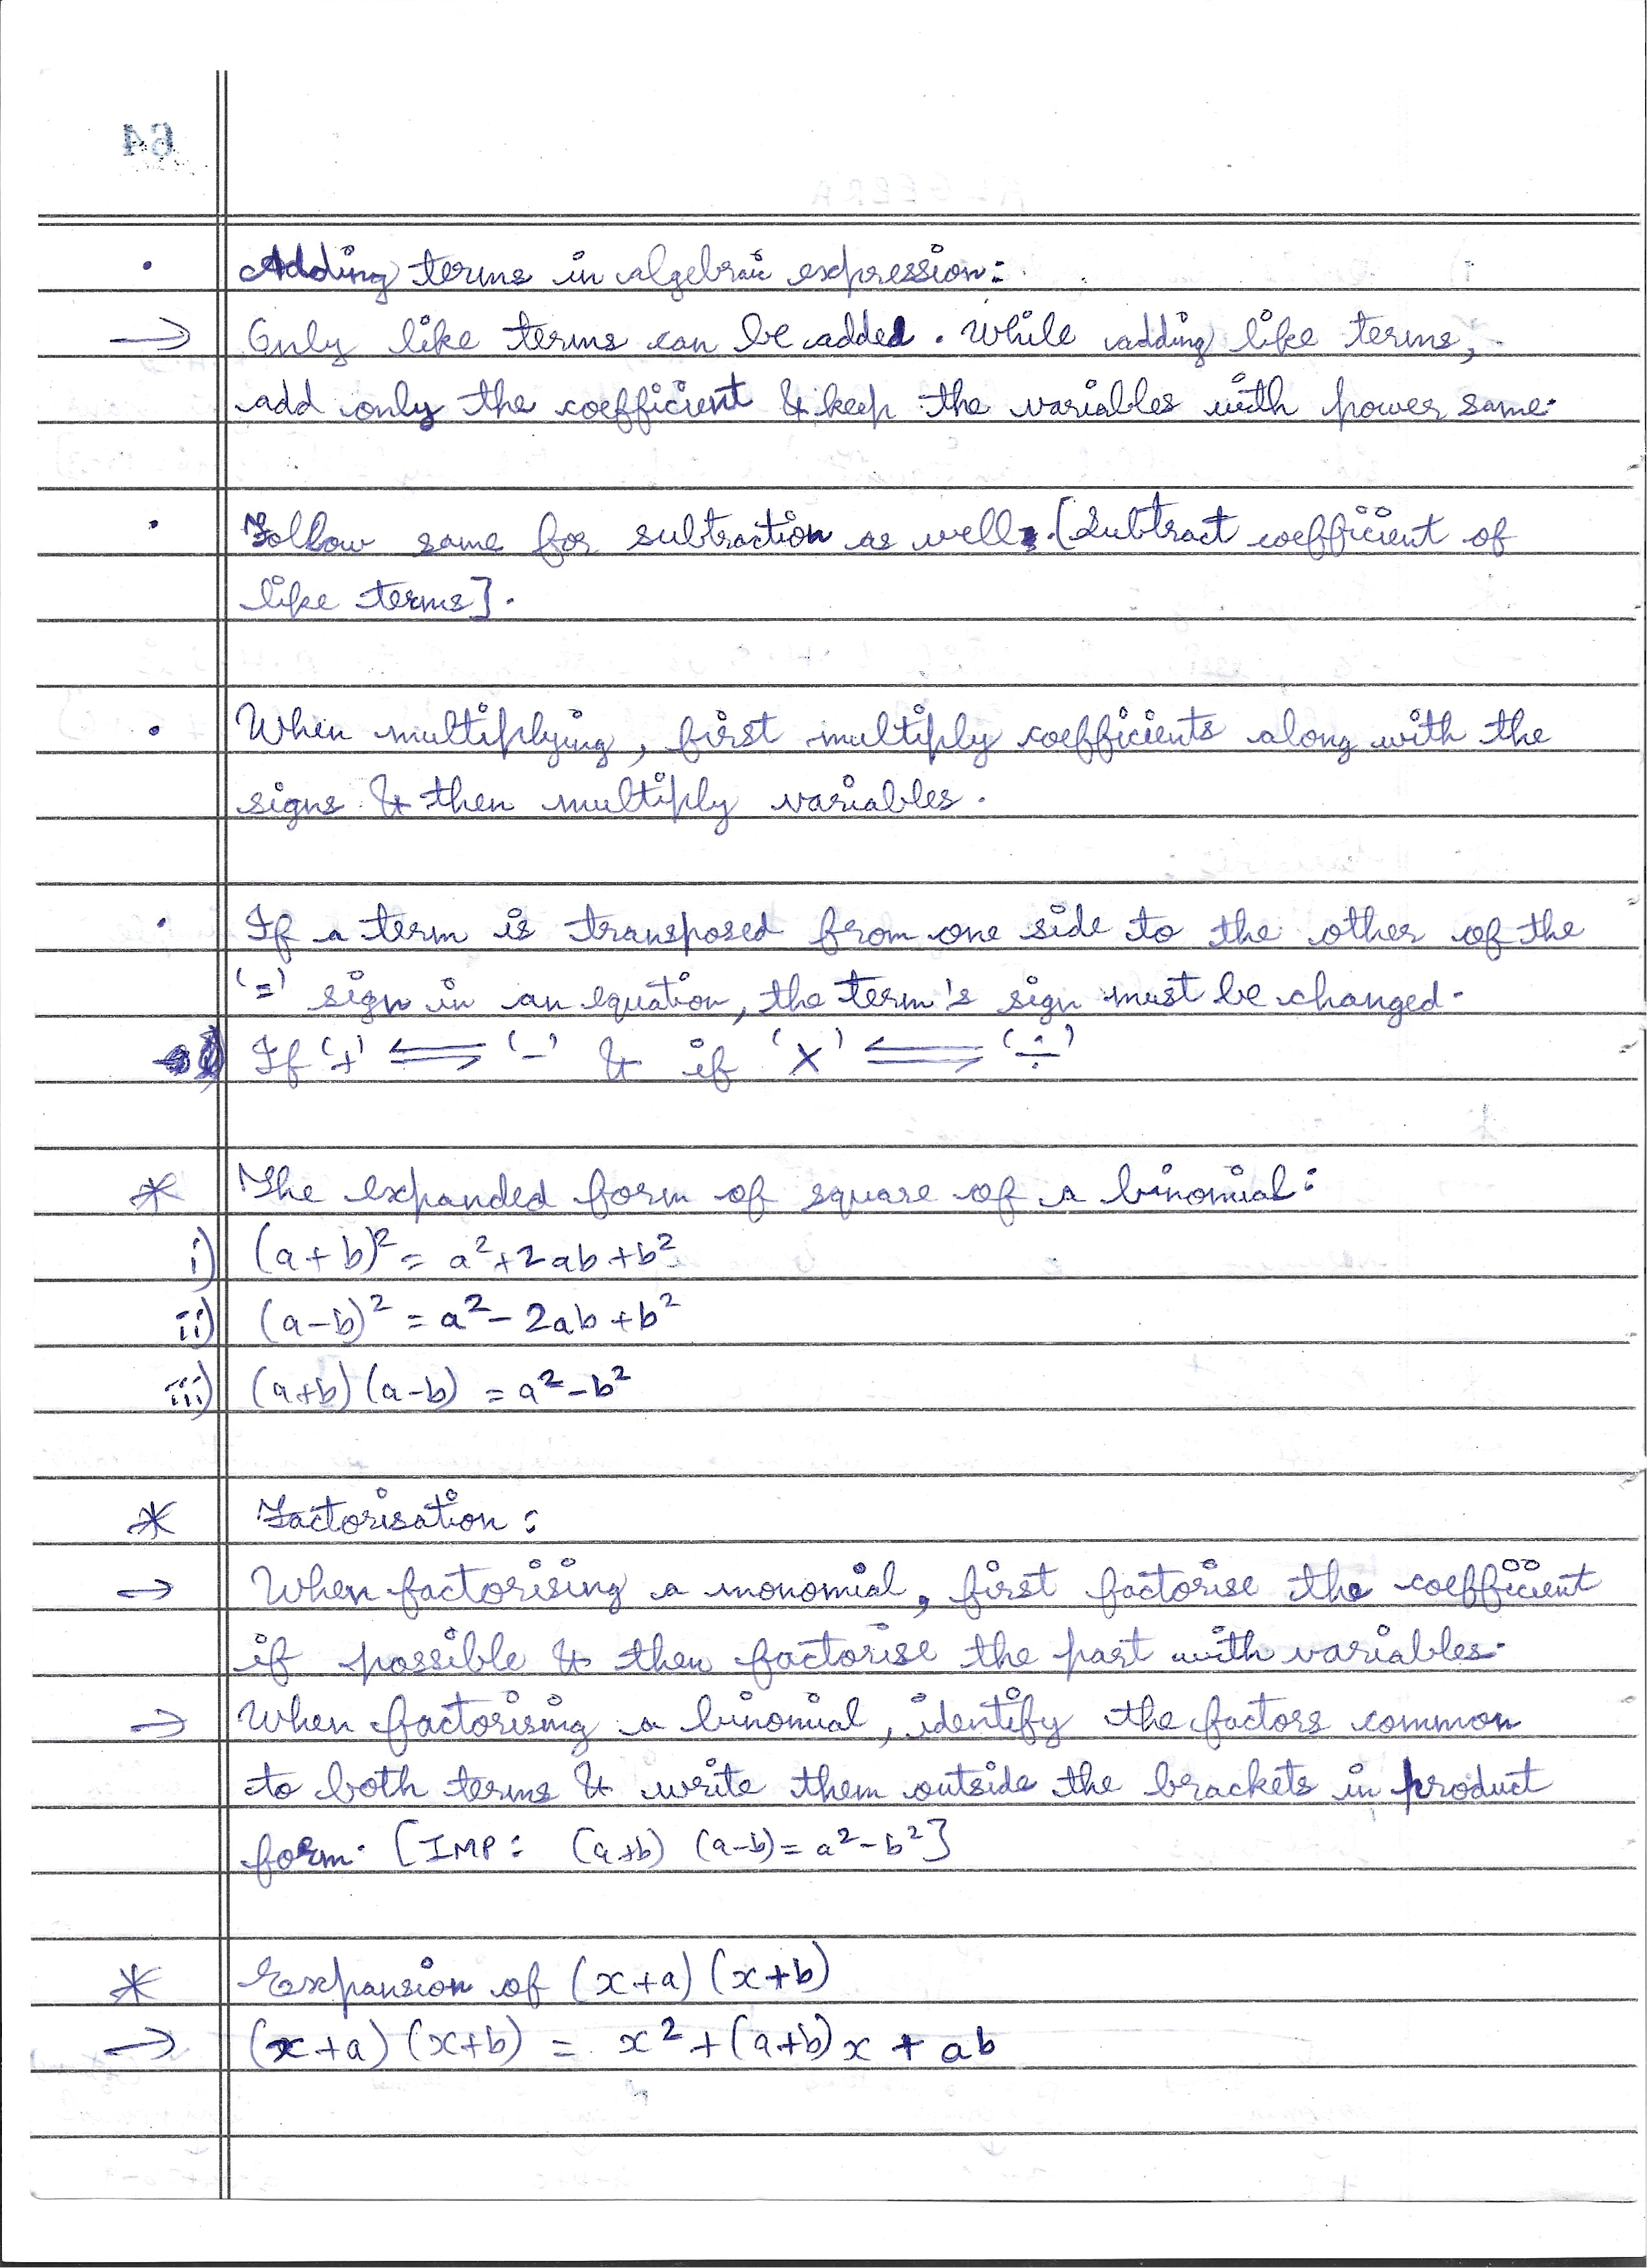 • Adding terms in algebraic expression:
→ Only like terms can be added. While adding like terms,
add only the coefficient & keep the variables with power same.
• Follow same for subtraction as well. [Subtract coefficient of
like terms].
• When multiplying, first multiply coefficients along with the
signs & then multiply variables.
• If a term is transposed from one side to the other of the
'=' sign in an equation, the term's sign must be changed.
If '+' ⇌ '-' & if '×' ⇌ '÷'
* The expanded form of square of a binomial:
i) (a+b)² = a²+2ab+b²
ii) (a-b)² = a²-2ab+b²
iii) (a+b)(a-b) = a²-b²
* Factorisation:
→ When factorising a monomial, first factorise the coefficient
if possible & then factorise the part with variables.
→ When factorising a binomial, identify the factors common
to both terms & write them outside the brackets in product
form. [IMP: (a+b) (a-b) = a²-b²]
* Expansion of (x+a)(x+b)
→ (x+a)(x+b) = x²+(a+b)x + ab